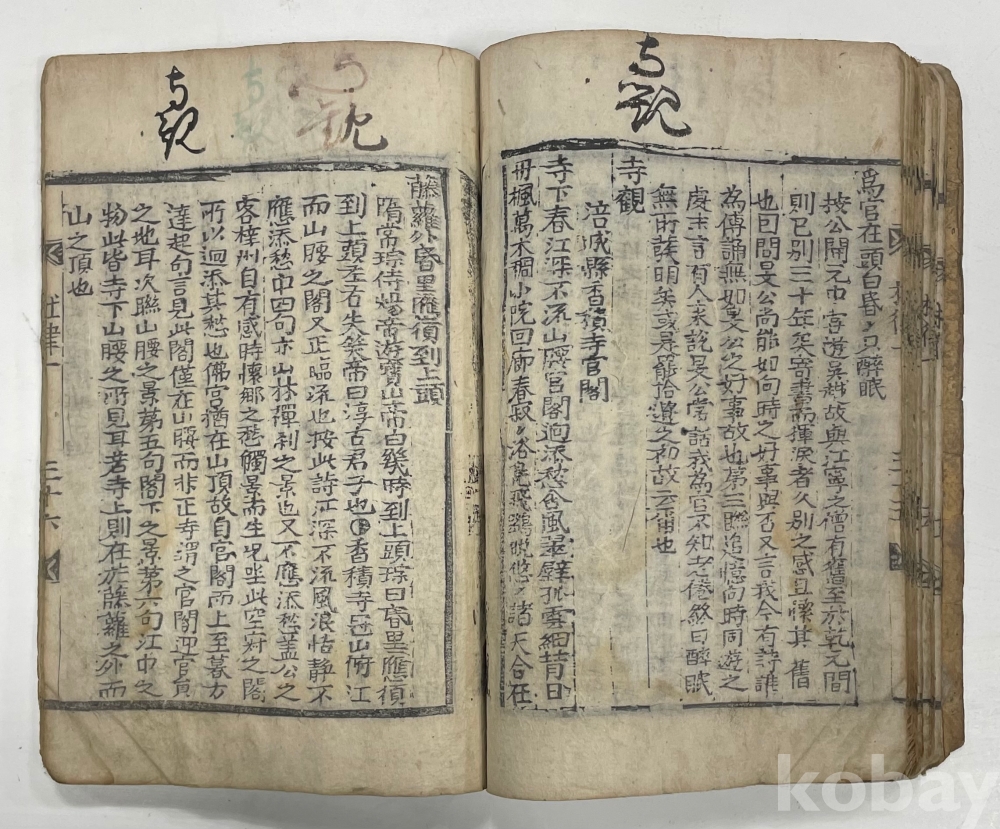 寺觀
爲官在頭白昏〻只醉眠
按公開元中嘗遊吳越故與江寧之僧有舊至於乾元間
則已別三十年矣寄書而揮淚者久別之感且懷其舊
也曰問旻公尚能如向時之好事與否又言我今有詩誰
爲傳誦無如旻公之好事故也第三聯追憶向時同遊之
處末言有人來說旻公常話我爲官不知老倦然日醉眠
無所發明矣或是節拾遺之初故云爾也
寺觀
涪城縣香積寺官閣
寺下春江深不流山腰官閣逈添愁含風翠壁孤雲細背日
丹楓萬木稠小院回廊春寂〻浴鳬飛鷺晩悠〻諸天合在
寺觀
寺觀
寺觀
藤蘿外昏黒應須到上頭
隋常琮侍煬帝遊寶山帝曰幾時到上頭琮曰昏黒應須
到上頭左右失笑帝曰淳古君子也香積寺冠山俯江
而山腰之閣又正臨流也按此詩江深不流風浪恬靜不
應添愁中四句亦山林禪刹之景也又不應添愁盖公之
客梓州自有感時懷鄉之愁觸景而生况坐此空寂之閣
所以逈添其愁也佛宮猶在山頂故自官閣而上至暮方
達起句言見此閣僅在山腰而非正寺謂之官閣迎官員
之地耳次聯山腰之景第五句閣下之景第六句江中之
物此皆寺下山腰之所見耳若寺上則在於藤蘿之外而
山之頂也
杜律一
三十六
kobay